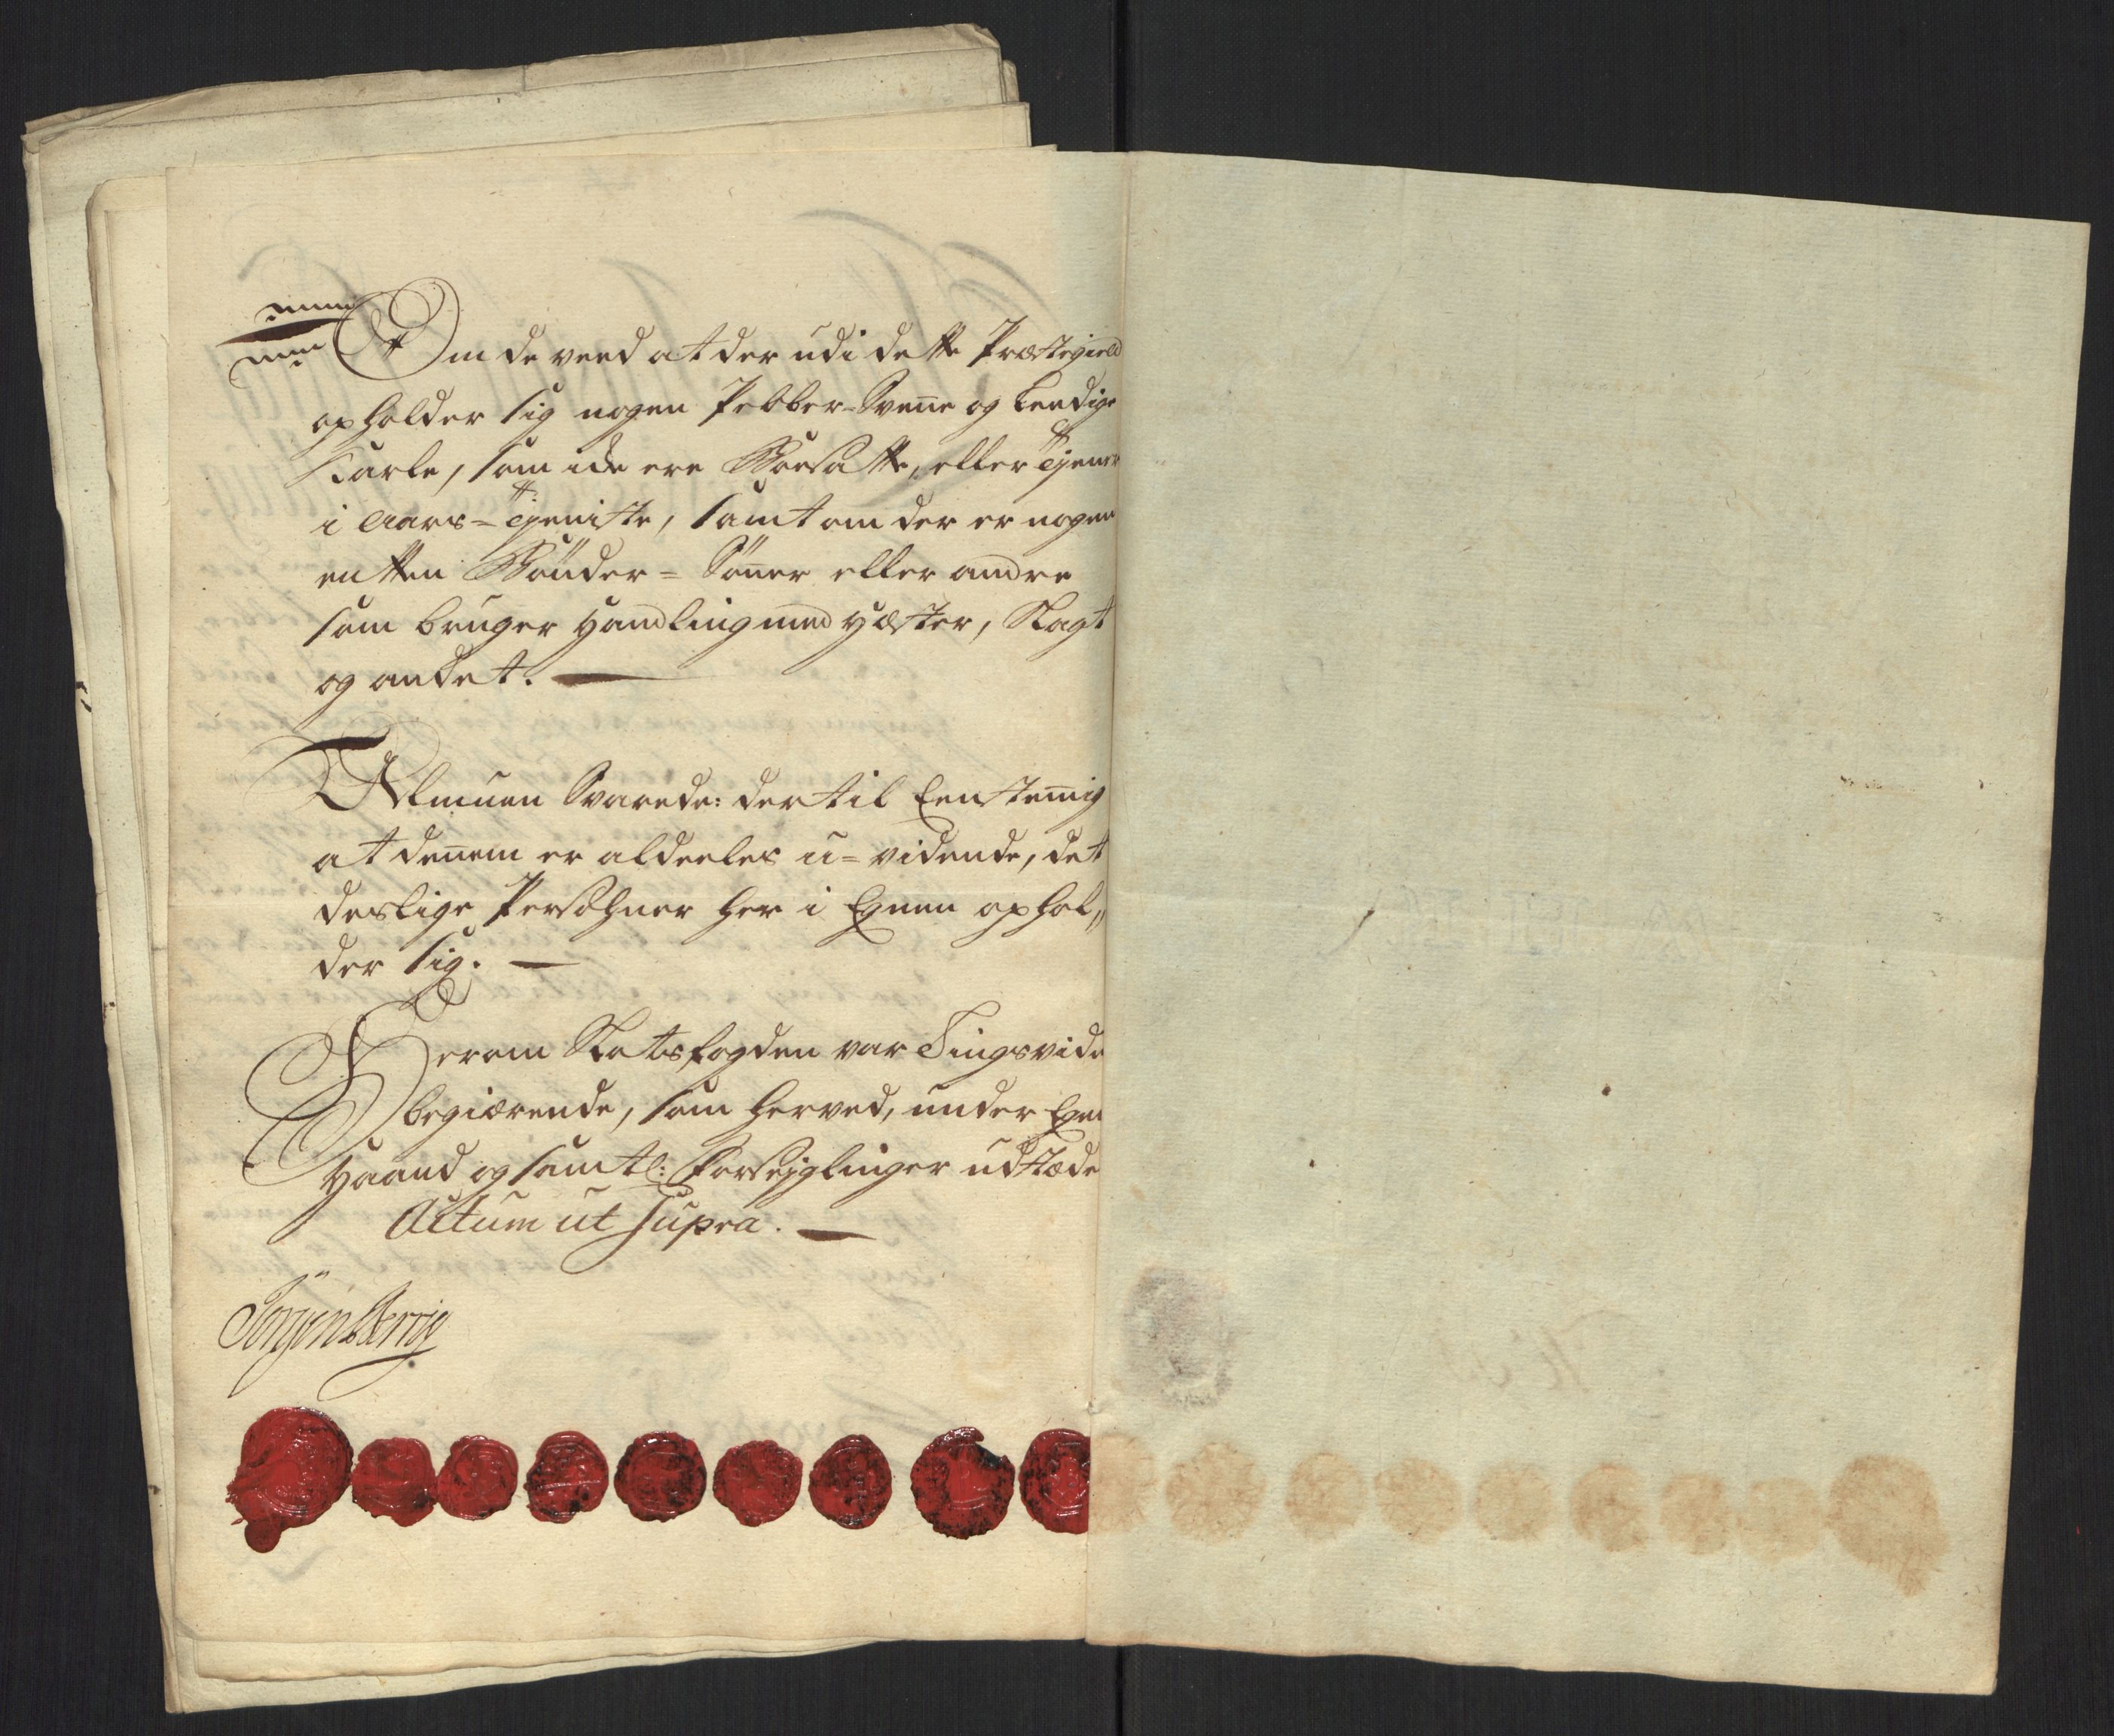 Om de veed at der udi dette Præstegield
opholder sig nogen Pebber-Svene og Leedige
Karle, som icke ere Boesatte, eller Tjener
i Aars-Tjeniste, samt om der er nogen
entten Bønder-Sønner eller andre
som bruger Handling med Hæster, Slagt
og andet.
Almuen Svarede: dertil Eenstemig
at dennem er aldeeles u-vidende, det
deslige Persohner her i Egnen ophol„
der sig.
Herom Skatsfogden var Tingsvide
begiærende, som herved, under Egen
Haand og samtl: Forseyglinger udstæde
Actum ut Supra.